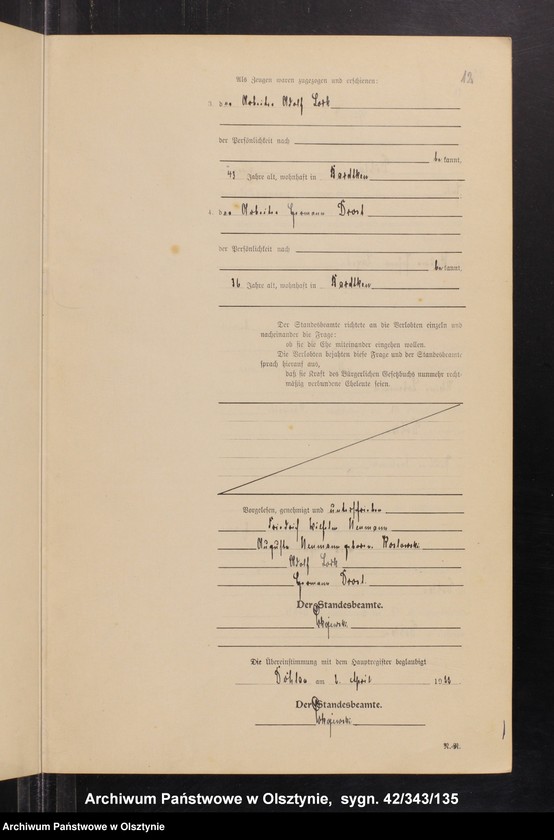 12
Als Zeugen waren zugezogen und erschienen:
3. der Arbeiter Adolf Lork
der Persönlichkeit nach
be kannt,
43 Jahre alt, wohnhaft in Bardtken
4. der Arbeiter Hermann Drost
der Persönlichkeit nach
be kannt,
36 Jahre alt, wohnhaft in Bardtken
Der Standesbeamte richtete an die Verlobten einzeln und
nacheinander die Frage:
ob sie die Ehe miteinander eingehen wollen.
Die Verlobten bejahten diese Frage und der Standesbeamte
sprach hierauf aus,
daß sie kraft des Bürgerlichen Gesetzbuchs nunmehr recht-
mäßig verbundene Eheleute seien.
Vorgelesen, genehmigt und unterschrieben
Friedrich Wilhelm Neumann
Auguste Neumann geborene Koslowski
Adolf Lork
Hermann Drost
Der Standesbeamte.
Die Übereinstimmung mit dem Hauptregister beglaubigt
am 2. April 19
Der Standesbeamte.
N.-R.
Archiwum Państwowe w Olsztynie, sygn. 42/343/135
Archiwum Państwowe w Olsztynie